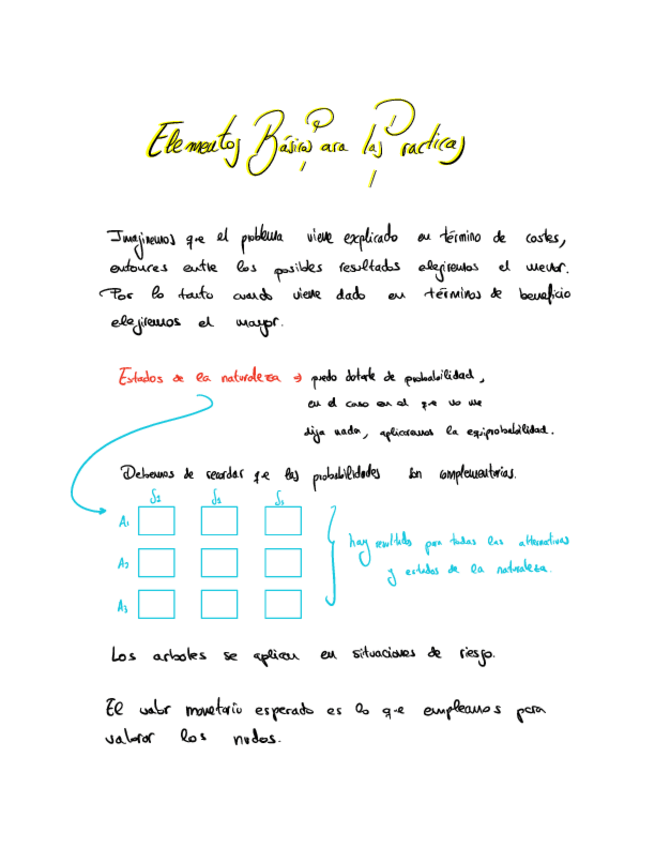 Elementos Básicos Para las Practicas
Imaginemos que el problema viene explicado en término de costes,
entonces entre los posibles resultados elegiremos el menor.
Por lo tanto cuando viene dado en términos de beneficio
elegiremos el mayor.
Estados de la naturaleza → puedo dotarle de probabilidad,
en el caso en el que no me
dija nada, aplicaremos la equiprobabilidad.
Debemos de recordar que las probabilidades son complementarias.
A1
A2
A3
hay resultados para todas las alternativas
y estados de la naturaleza.
Los arboles se aplican en situaciones de riesgo.
El valor monetario esperado es lo que empleamos para
valorar los nodos.